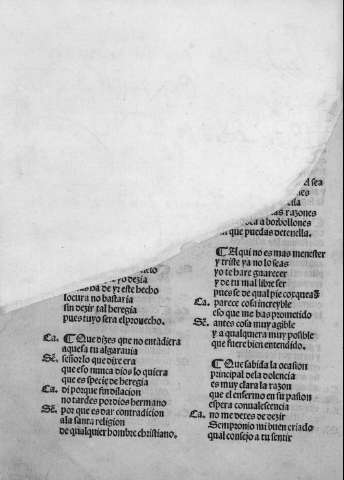 yo dezia
de yr este hecho
locura no bastaria
sin dezir tal heregia
pues tuyo sera el prouecho.
Ca. ¶ Que dizes que no entẽdiera
aquesta tu algarauia
Sẽ. señor lo que dixe era
que eso nunca dios lo quiera
que es specie de heregia
Ca. di porque sin dilacion
no tardes por dios hermano
Sẽ. por que es dar contradicion
ala santa religion
de qualquier hombre christiano.
sea
razones
a borbollones
que puedas detenella.
¶ Aqui no es mas menester
y triste ya no lo seas
yo te hare guarecer
y de tu mal libre ser
pues se de qual pie coxqueas
Ca. parece cosa increyble
eso que me has prometido
Sẽ. antes cosa muy agible
y a qualquiera muy posible
que fuere bien entendido.
¶ Que sabida la ocasion
principal dela dolencia
es muy clara la razon
que el enfermo en su pasion
espera conualescencia
Ca. no me dexes de dezir
Sempronio mi buen criado
qual consejo a tu sentir